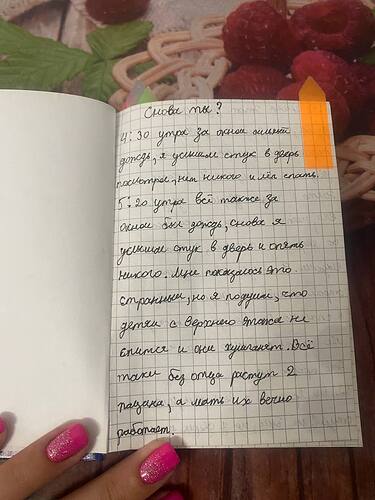 Снова ты?
4:30 утра за окном лил
дождь, я услышал стук в дверь
посмотрел, нет никого и лёг спать.
5:20 утра всё также за
окном был дождь, снова я
услышал стук в дверь и опять
никого. Мне показалось это
странным, но я подумал, что
детям с верхнего этажа не
спится и они хулиганят. Всё
таки без отца растут 2
пацана, а мать их вечно
работает.